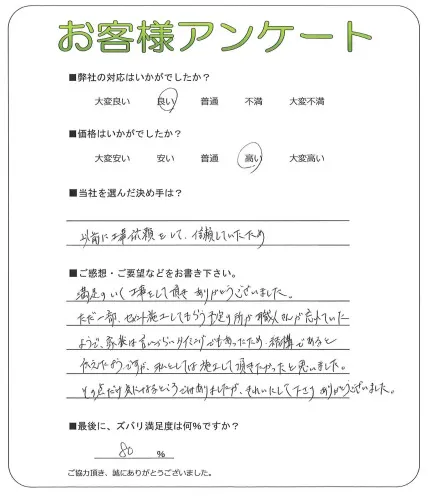 お客様アンケート
■弊社の対応はいかがでしたか？
大変良い 良い 普通 不満 大変不満
■価格はいかがでしたか？
大変安い 安い 普通 高い 大変高い
■当社を選んだ決め手は？
以前に工事依頼をして、信頼していたため
■ご感想・ご要望などをお書き下さい。
満足のいく工事をして頂き ありがとうございました。
ただ一部、施工してもらう予定の所が職人さんが忘れていた
ようで、家族は言いづらいタイミングでもあったため 結構であると
伝えたようですが、私としては施工して頂きたかったと思いました。
その点だけ気になるところではありましたが、きれいにして下さり ありがとうございました。
■最後に、ズバリ満足度は何％ですか？
80 ％
ご協力頂き、誠にありがとうございました。